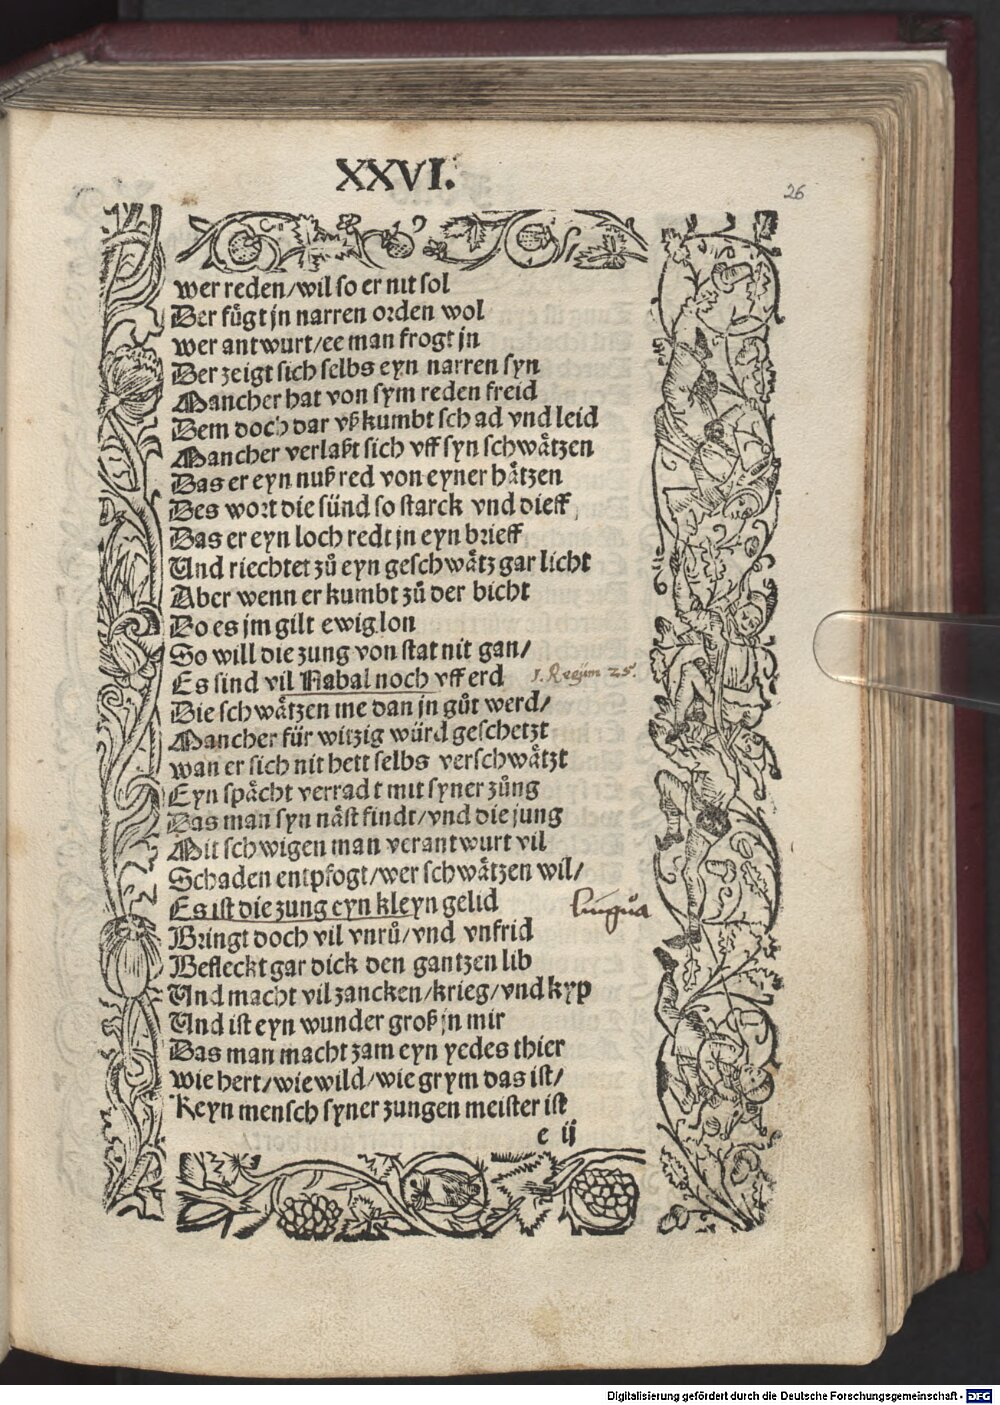 XXVI.
26
wer reden/wil so er nit sol
Der fůgt jn narren orden wol
wer antwurt/ee man frogt jn
Der zeigt sich selbs eyn narren syn
Mancher hat von sym reden freid
Dem doch dar vß kumbt schad vnd leid
Mancher verlaßt sich vff syn schwätzen
Das er eyn nuß red von eyner hätzen
Des wort die sünd so starck vnd dieff
Das er eyn loch redt jn eyn brieff
Und riechtet zů eyn geschwätz gar licht
Aber wenn er kumbt zů der bicht
Do es jm gilt ewig lon
So will die zung von stat nit gan/
Es sind vil Nabal noch vff erd 1. Regum 25.
Die schwätzen me dan jn gůt werd/
Mancher für witzig würd geschetzt
wan er sich nit hett selbs verschwätzt
Eyn spächt verradt mit syner zůng
Das man syn näst findt/vnd die jung
Mit schwigen man verantwurt vil
Schaden entpfogt/wer schwätzen wil/
Es ist die zung eyn kleyn gelid lingua
Bringt doch vil vnrů/vnd vnfrid
Befleckt gar dick den gantzen lib
Und macht vil zancken/krieg/vnd kyp
Und ist eyn wunder groß jn mir
Das man macht zam eyn yedes thier
wie hert/wie wild/wie grym das ist/
Keyn mensch syner zungen meister ist
e ij
Digitalisierung gefördert durch die Deutsche Forschungsgemeinschaft - DFG